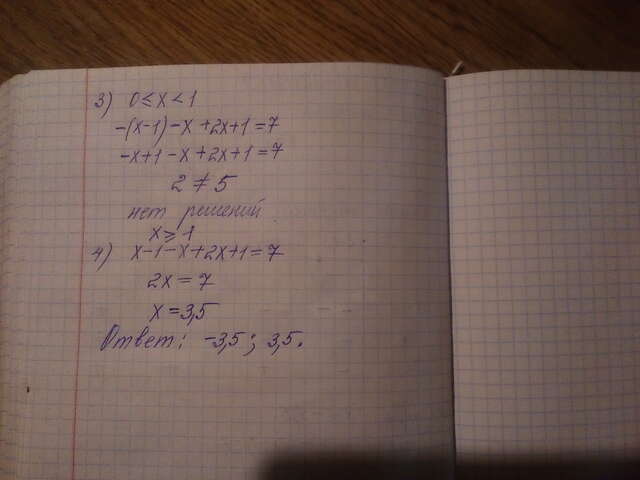 3) 0≤x<1
-(x-1)-x+2x+1=7
-x+1-x+2x+1=7
2≠5
нет решений
x≥1
4) x-1-x+2x+1=7
2x=7
x=3,5
Ответ: -3,5; 3,5.